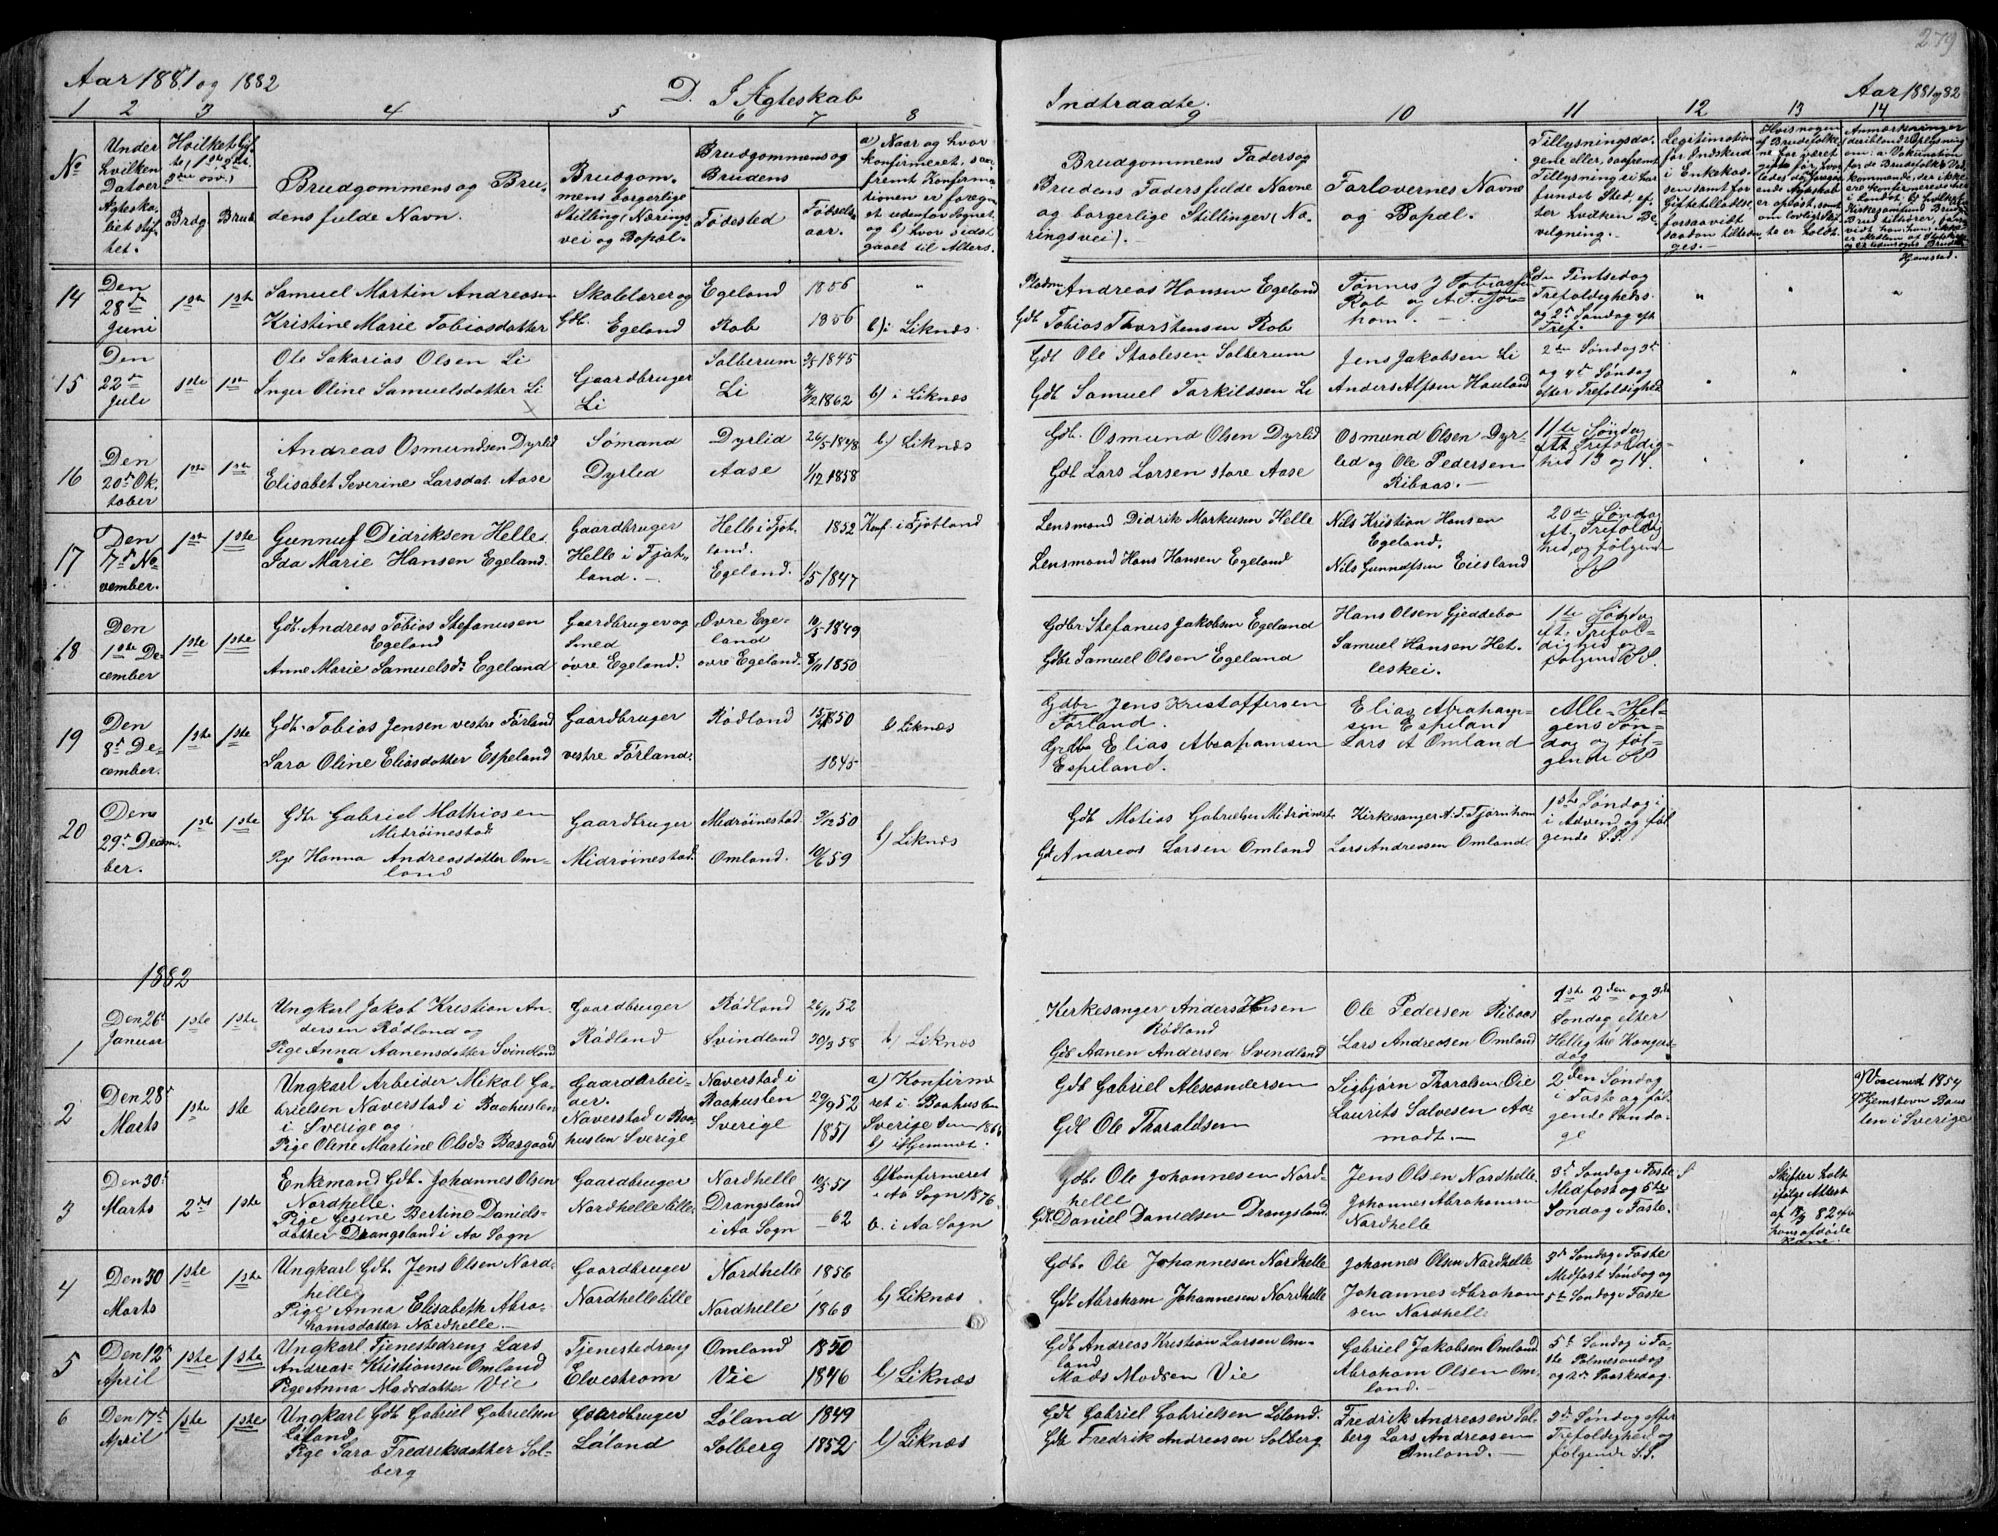 279
Aar 1881 og 1882
D. I Ægteskab
Indtraadte.
Aar 1881 og 82
1 2 3 4 5 6 7 8
9 10 11 12 13 14
No
Under
hvilken
Datoer
Ægteska-
bet stif-
tet.
Hvilket Gif-
te, 1ste, 2det,
3die osv.
Brdg Brud.
Brudgommens og Bru-
dens fulde Navn.
Brudgom-
mens borgerlige
Stilling (Nærings-
vei og Bopæl.
Brudgommens og
Brudens
Fødested
Fødsels-
aar.
a) Naar og hvor
konfirmeret, saa-
fremt Konfirma-
tionen er foregaa-
et udenfor Sognet
og b) hvor sidst
gaaet til Alters.
Brudgommens Faders og
Brudens Faders fulde Navne
og borgerlige Stillinger (Næ-
ringsvei).
Forlovernes Navne
og Bopæl.
Tillysningsda-
gene eller, saafremt
Tillysning ei har
fundet Sted, ef-
ter hvilken Be-
vilgning.
Legitimation
for Indskud
i Enkekas-
sen samt for
Giftetilladelse
forsaavidt
saadan tiltræn-
ges.
14
Den
28de
Juni
1ste 1ste
Samuel Martin Andreasen
Kristine Marie Tobiasdatter
Skolelærer og
Gdb. Egeland
Egeland
Rob
1856
1856
b) i Liknæs
Andreas Hansen Egeland
Gdb Tobias Thorstensen Rob
Tønnes J Tobiassen
Rob og A. T. Tjørn-
hom.
Tref.
Hjemsted.
15
Den
22de
Juli
1ste 1ste
Ole Sakarias Olsen Li
Inger Oline Samuelsdatter Li
Gaardbruger
Li
Solberum
Li
1845
1862
b) i Liknæs
Gdb Ole Staalesen Solberum
Gdb Samuel Torkildsen Li
Jens Jakobsen Li
Anders Alfsen Hauland
2den Søndag 3de
og 4de Søndag
efter Trefoldighed
16
Den
20de Ok-
tober
1ste 1ste
Andreas Osmundsen Dyrlid
Elisabet Severine Larsdat. Aase
Sømand
Dyrlid
Dyrlid
Aase
26/5 1848
1/12 1858
b) Liknæs
Gdb. Osmund Olsen Dyrlid
Gdb Lars Larsen store Aase
Osmund Olsen Dyr-
lid og Ole Pedersen
Ribaas.
11te Søndag
eft Trefoldig-
hed 13 og 14.
17
Den
7de No-
vember.
1ste 1ste
Gunnuf Didriksen Helle
Ida Marie Hansen Egeland.
Gaardbruger
Helle i Fjot-
land.
Helle i Fjot-
land.
Egeland.
1852
1/5 1847
Konf. i Fjotland
Lensmand Didrik Markusen Helle
Lensmand Hans Hansen Egeland
Nils Kristian Hansen
Egeland.
Nils Gunnufsen Eiesland
20de Søndag
eft. Trefoldig-
hed, og følgende
SS
18
Den
1ste De-
cember
1ste 1ste
Gdb. Andreas Tobias Stefanusen
Egeland
Anne Marie Samuelsd. Egeland
Gaardbruger og
Smed
øvre Egeland.
Øvre Ege-
land
øvre Egeland.
10/5 1849
8/11 1850
Gdbr Stefanus Jakobsen Egeland
Gdbr Samuel Olsen Egeland
Hans Olsen Gjeddebo
Samuel Hansen Het-
leskei.
1te Søndag
eft. Trefol-
dighed og
følgende SS.
19
Den
8de De-
cember.
1ste 1ste
Gdb. Tobias Jensen vestre Førland
Sara Oline Eliasdatter Espeland
Gaardbruger
vestre Førland.
Rødland
1850
1845
b Liknæs
Gdbr Jens Kristoffersen
Førland.
Grdbr Elias Abrahamsen
Espeland.
Elias Abraham-
sen Espeland
Lars A Omland
Alle-Hel-
gens Søn-
dag og føl-
gende SS
20
Den
29de Decem-
ber.
1ste 1ste
Gdb Gabriel Mathiasen
Midrøinestad
Pige Hanna Andreasdatter Om-
land
Gaardbruger
Midrøinestad.
Midrøinestad.
Omland.
9/12 50
10/6 59
b) Liknæs
Gdb Matias Gabrielsen Midrøinest
Gdb Andreas Larsen Omland
Kirkesanger A. T. Tjørnhom
Lars Andreasen Omland.
1ste Søndag i
i Advend og føl-
gende S.S.
1882
1
Den 26de
Januar
1ste 1ste
Ungkarl Jakob Kristian An-
dersen Rødland og
Pige Anna Aanensdatter Svindland
Gaardbruger
Rødland
Rødland
Svindland
26/11 52
30/3 58
b) Liknæs
Kirkesanger Anders Hansen
Rødland
Gdb Aanen Andersen Svindland
Ole Pedersen Ribaas
Lars Andreasen Omland
1ste 2den og 3de
Søndag efter
Hellig tre Konger-
dag
2
Den 28de
Marts
1ste 1ste
Ungkarl Arbeider Mikal Ga-
brielsen Naverstad i Baahuslen
i Sverige og
Pige Oline Martine Olsd. Bargaard
Gaardarbei-
der.
Naverstad i Baa-
huslen Sverige
Naverstad i
Baahuslen
Sverige
29/9 52
1851
a) Konfirme
ret i Baahuslen
Sverige den 1866
b) i Hjemmet.
Gdb Gabriel Alexandersen
Gdb Ole Tharaldsen
Sigbjørn Tharalsen Oie
Laurits Salvesen Aa-
modt.
2den Søndag
i Faste og føl-
gende Sønda-
ge
a) Vaccineret 1854
b) Hjemstavn Baahus
len i Sverige
3
Den 30de
Marts
2det 1ste
Enkemand Gdb. Johannes Olsen
Nordhelle
Pige Gesine Bertine Daniels-
datter Drangsland i Aa Sogn
Gaardbruger
Nordhelle lille
Nordhelle
Drangsland
i Aa Sogn
10/5 51
62
b) Konfirmeret
i Aa Sogn 1876.
b. i Aa Sogn
Gdb. Ole Johannesen Nord-
helle
Gdb Daniel Danielsen Drangsland.
Jens Olsen Nordhelle
Johannes Abrahamsen
Nordhelle
3de Søndag i Faste
Midfast og 5te
Søndag i Faste.
Skifter holt
ifølge Attest
af 18/3 82
hans afdøde
Kone.
4
Den 30
Marts
1ste 1ste
Ungkarl Gdb. Jens Olsen Nord-
helle og
Pige Anna Elisabeth Abra-
hamsdatter Nordhelle.
Gaardbruger
Nordhelle lille
Nordhelle
Nordhelle
1856
1860
b) Liknæs
Gdb. Ole Johannesen Nordhelle
Gdb Abraham Johannesen Nordhelle
Johannes Olsen Nordhelle
Johannes Abraham
sen Nordhelle
3de Søndag i Faste
Midfast Søndag og
5te Søndag i Faste
5
Den 12te
April
1ste 1ste
Ungkarl Tjenestedreng Lars
Andreas Kristiansen Omland
Pige Anna Madsdatter Vie
Tjenestedreng
Elvestrom
Omland
Vie
1850
1846
b) Liknæs
Gdb Andreas Kristian Larsen Om-
land
Mads Madsen Vie
Gabriel Jakobsen Omland
Abraham Olsen Om-
land.
5te Søndag i Fa-
ste Palmesøndag
og 2den Paaskedag.
6
Den 17de
April
1ste 1ste
Ungkarl Gdb Gabriel Gabrielsen
Løland
Pige Sara Fredriksdatter Sol-
berg
Gaardbruger
Løland
Løland
Solberg
1849
1852
b) Liknæs
Gdb Gabriel Gabrielsen Løland.
Gdb Fredrik Andreasen Solberg
Fredrik Andreasen Sol-
berg Lars Andreasen
Omland.
3de Søndag efter
Trefoldighed og
følgende S.S.